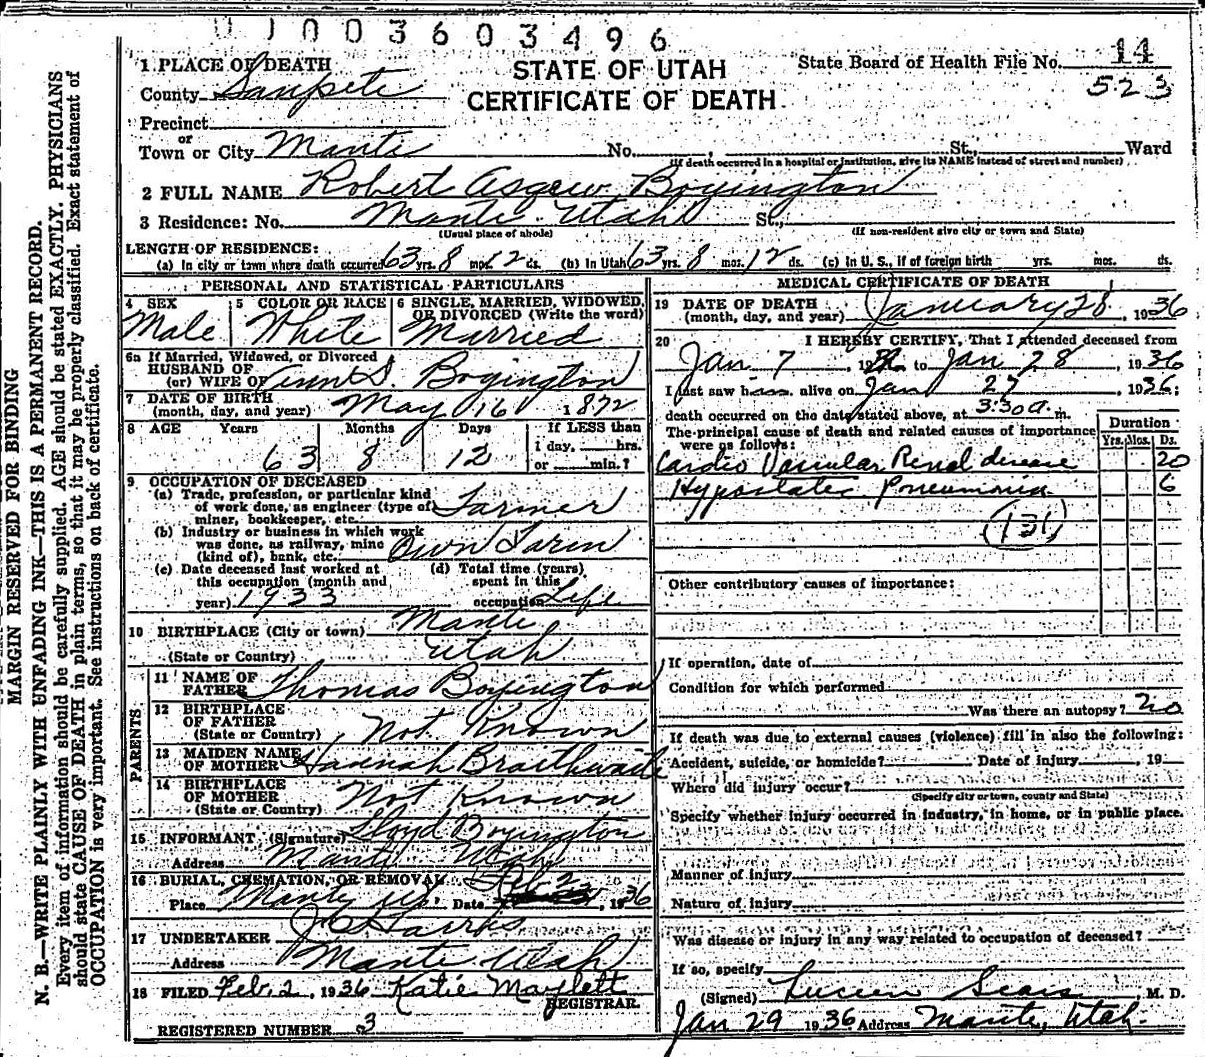 0 3 6 0 3 4 9 6
1 PLACE OF DEATH
STATE OF UTAH
CERTIFICATE OF DEATH
State Board of Health File No. 14
523
County Sanpete
Precinct
or
Town or City Manti No. , St., Ward
(If death occurred in a hospital or institution, give its NAME instead of street and number)
2 FULL NAME Robert Boyington
3 Residence: No. Manti Utah St.,
(Usual place of abode) (If non-resident give city or town and State)
LENGTH OF RESIDENCE:
(a) In city or town where death occurred 63 yrs. 8 mos. 12 ds. (b) In Utah 63 yrs. 8 mos. 12 ds. (c) in U. S., if of foreign birth yrs. mos. ds.
PERSONAL AND STATISTICAL PARTICULARS
4 SEX Male
5 COLOR OR RACE White
6 SINGLE, MARRIED, WIDOWED, OR DIVORCED (Write the word) Married
6a If Married, Widowed, or Divorced
HUSBAND OF
(or) WIFE OF Ann S. Boyington
7 DATE OF BIRTH
(month, day, and year) May 16 1872
8 AGE Years Months Days If LESS than
1 day, hrs.
63 8 12 or min.?
9 OCCUPATION OF DECEASED
(a) Trade, profession, or particular kind
of work done, as engineer (type of
miner, bookkeeper, etc. Farmer
(b) Industry or business in which work
was done, as railway, mine
(kind of), bank, etc. Own Farm
(c) Date deceased last worked at
this occupation (month and
year) 1933
(d) Total time (years)
spent in this
occupation Life
10 BIRTHPLACE (City or town) Manti
(State or Country) Utah
PARENTS
11 NAME OF
FATHER Thomas Boyington
12 BIRTHPLACE
OF FATHER
(State or Country) Not Known
13 MAIDEN NAME
OF MOTHER Hannah Braithwaite
14 BIRTHPLACE
OF MOTHER
(State or Country) Not Known
15 INFORMANT (Signature) Lloyd Boyington
Address Manti Utah
16 BURIAL, CREMATION, OR REMOVAL
Place Manti Ut. Date Feb 2, 1936
17 UNDERTAKER
Address Manti Utah
18 FILED Feb. 2, 1936 Katie Maylett
REGISTRAR.
REGISTERED NUMBER 3
MEDICAL CERTIFICATE OF DEATH
19 DATE OF DEATH
(month, day, and year) January 28, 1936
20 I HEREBY CERTIFY, That I attended deceased from
Jan 7, 19 to Jan 28, 1936
I last saw him alive on Jan 27 1936;
death occurred on the date stated above, at 3:30 a. m.
The principal cause of death and related causes of importance
were as follows:
Duration
Yrs. Mos. Ds.
Cardio Vascular Renal disease 20
Hypostatic Pneumonia 6
(131)
Other contributory causes of importance:
If operation, date of
Condition for which performed
Was there an autopsy? no
If death was due to external causes (violence) fill in also the following:
Accident, suicide, or homicide? Date of injury , 19
Where did injury occur?
(Specify city or town, county and State)
Specify whether injury occurred in industry, in home, or in public place.
Manner of injury
Nature of injury
Was disease or injury in any way related to occupation of deceased?
If so, specify
(Signed) Lucien Sears M. D.
Jan 29 1936 Address Manti, Utah.
MARGIN RESERVED FOR BINDING
N. B.—WRITE PLAINLY WITH UNFADING INK—THIS IS A PERMANENT RECORD.
Every item of information should be carefully supplied. AGE should be stated EXACTLY. PHYSICIANS
should state CAUSE OF DEATH in plain terms, so that it may be properly classified. Exact statement of
OCCUPATION is very important. See instructions on back of certificate.